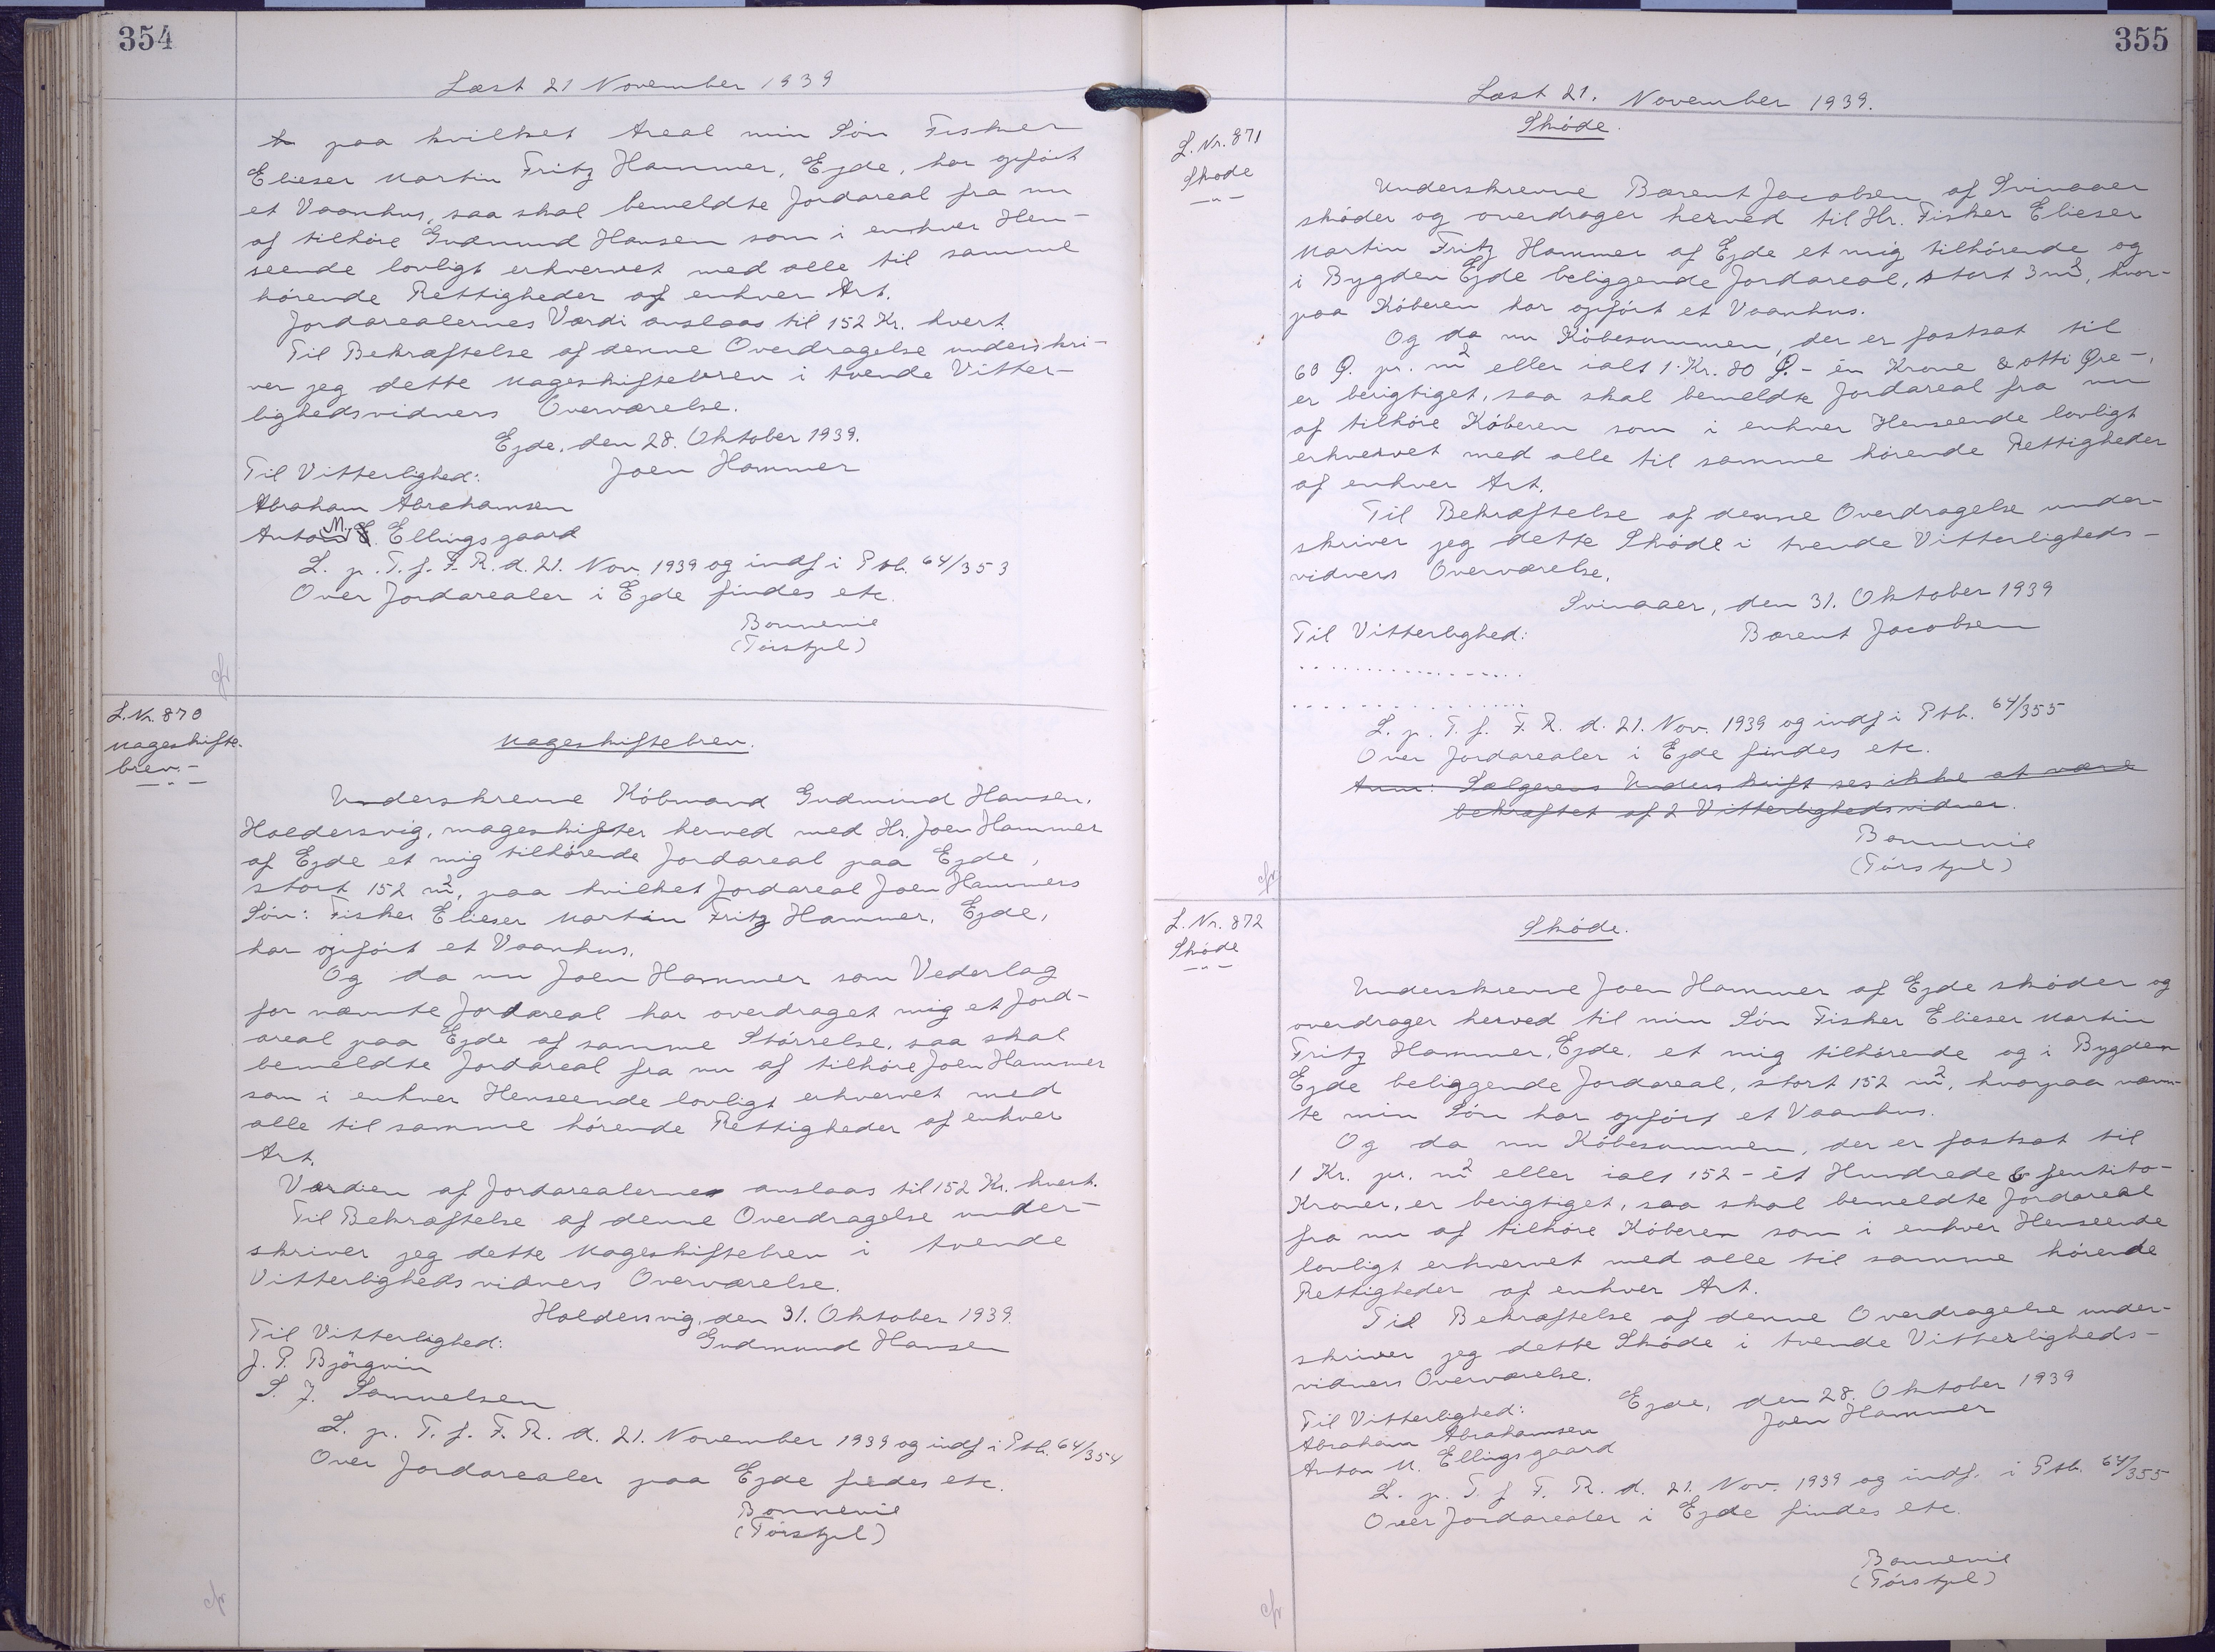 354
Læst 21 November 1939
paa hvilket Areal min Søn Fisker
Elieser Martin Fritz Hammer, Ejde, har opført
et Vaanhus, saa skal bemeldte Jordareal fra nu
af tilhøre Gudmund Hansen som i enhver Hen-
seende lovligt erhvervet med alle til samme
hørende Rettigheder af enhver Art.
Jordarealernes Værdi anslaas til 152 Kr. hvert.
Til Bekræftelse af denne Overdragelse underskri-
ver jeg dette Mageskiftebrev i tvende Vitter-
lighedsvidners Overværelse.
Ejde, den 28. Oktober 1939.
Til Vitterlighed: Joen Hammer
Abraham Abrahamsen
Anton M. Ellingsgaard
L. p. T. f. F. R. d. 21. Nov. 1939 og indf i Ptb. 64/353
Over Jordarealer i Ejde findes etc.
Bonnevie
(Tórshjl)
L. Nr. 870
Mageskifte-
brev.-
-"-
Mageskiftebrev.
Underskrevne Købmand Gudmund Hansen,
Haldersvig, mageskifter herved med Hr. Joen Hammer
af Ejde et mig tilhørende Jordareal paa Ejde,
stort 152 m2, paa hvilket Jordareal Joen Hammers
Søn: Fisker Elieser Martin Fritz Hammer, Ejde,
har opført et Vaanhus.
Og da nu Joen Hammer som Vederlag
for nævnte Jordareal har overdraget mig et Jord-
areal paa Ejde af samme Størrelse, saa skal
bemeldte Jordareal fra nu af tilhøre Joen Hammer
som i enhver Henseende lovligt erhvervet med
alle til samme hørende Rettigheder af enhver
Art.
Værdien af Jordarealerne anslaas til 152 Kr. hvert.
Til Bekræftelse af denne Overdragelse under-
skriver jeg dette Mageskiftebrev i tvende
Vitterlighedsvidners Overværelse.
Haldersvig, den 31. Oktober 1939.
Til Vitterlighed: Gudmund Hansen
J. P. Bjørgvin
S. J. Samuelsen
L. p. T. f. F. R. d. 21. November 1939 og indf i Ptb. 64/354
Over Jordarealer paa Ejde findes etc.
Bonnevie
(Tórshjl)
355
Læst 21. November 1939.
L. Nr. 871
Skøde
-"-
Skøde.
Underskrevne Bærent Jacobsen af Svinaaer
skøder og overdrager herved til Hr. Fisker Elieser
Martin Fritz Hammer af Ejde et mig tilhørende og
i Bygden Ejde beliggende Jordareal, stort 3 m2, hvor-
paa Køberen har opført et Vaanhus.
Og da nu Købesummen, der er fastsat til
60 Ø. pr. m2 eller ials 1 Kr. 80 Ø. - én Krone & otti Øre -,
er berigtiget, saa skal bemeldte Jordareal fra nu
af tilhøre Køberen som i enhver Henseende lovligt
erhvervet med alle til samme hørende Rettigheder
af enhver Art.
Til Bekræftelse af denne Overdragelse under-
skriver jeg dette Skøde i tvende Vitterligheds-
vidners Overværelse.
Svinaaer, den 31. Oktober 1939
Til Vitterlighed: Bærent Jacobsen
L. p. T. f. F. R. d. 21. Nov. 1939 og indf i Ptb. 64/355
Over Jordarealer i Ejde findes etc.
Anm: Sælgerens Underskrift ses ikke at være
bekræftet af 2 Vitterlighedsvidner.
Bonnevie
(Tórshjl)
L. Nr. 872
Skøde
-"-
Skøde.
Underskrevne Joen Hammer af Ejde skøder og
overdrager herved til min Søn Fisker Elieser Martin
Fritz Hammer, Ejde, et mig tilhørende og i Bygden
Ejde beliggende Jordareal, stort 152 m2, hvorpaa nævn-
te min Søn har opført et Vaanhus.
Og da nu Købesummen, der er fastsat til
1 Kr. pr. m2 eller ials 152 - ét Hundrede & femtito-
Kroner, er berigtiget, saa skal bemeldte Jordareal
fra nu af tilhøre Køberen som i enhver Henseende
lovligt erhvervet med alle til samme hørende
Rettigheder af enhver Art.
Til Bekræftelse af denne Overdragelse under-
skriver jeg dette Skøde i tvende Vitterligheds-
vidners Overværelse.
Ejde, den 28. Oktober 1939
Til Vitterlighed: Joen Hammer
Abraham Abrahamsen
Anton M. Ellingsgaard
L. p. T. f. F. R. d. 21. Nov. 1939 og indf. i Ptb. 64/355
Over Jordarealer i Ejde findes etc.
Bonnevie
(Tórshjl)